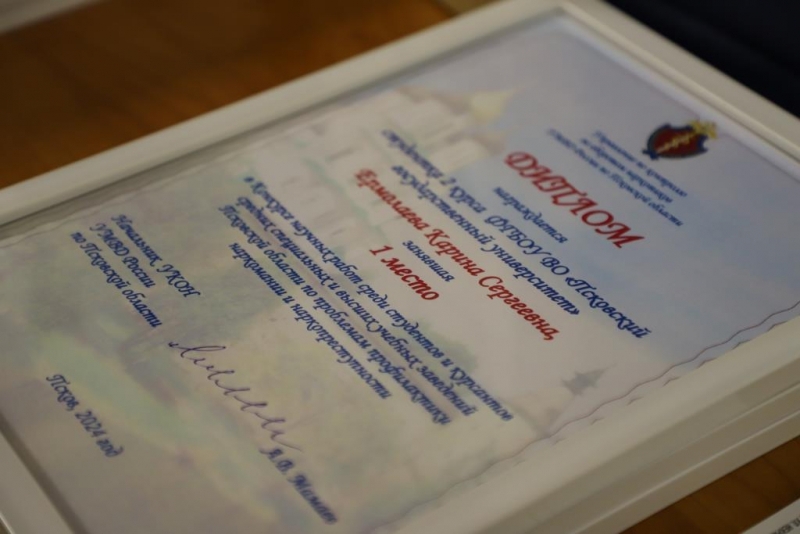 Управление по контролю
за оборотом наркотиков
УМВД России по Псковской области
ДИПЛОМ
награждается
студентка 2 курса ФГБОУ ВО «Псковский
государственный университет»
Ермолаева Карина Сергеевна,
занявшая
1 место
в Конкурсе научных работ среди студентов и курсантов
средних специальных и высших учебных заведений
Псковской области по проблемам профилактики
наркомании и наркопреступности
Начальник УКОН
УМВД России
по Псковской области
А.В.
Псков, 2024 год